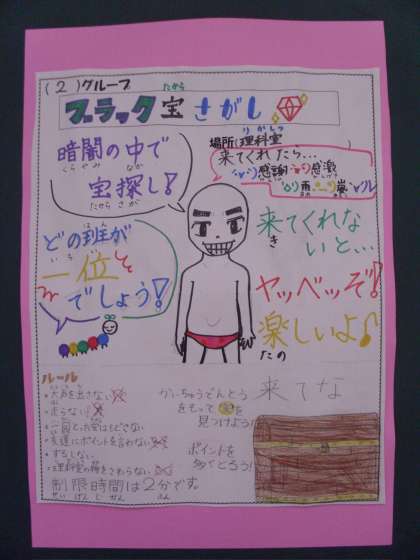 (2)グループ
たから
ブラック宝さがし
暗闇の中で
くらやみ なか
宝探し!
たから さが
りかしつ
場所:理科室
来てくれたら…
感謝 感激
雨 嵐
どの班が
いちい
一位
でしょう!
来てくれな
き
いと…
ヤッベッぞ!
楽しいよ♪
たの
ルール
・大声を出さない
・走らない
・友達にポイントを言わない
・ずるしない
制限時間は2分です
せい げん じ かん ふん
かいちゅうでんとう
をもって
見つけよう!
ポイントを
多くとろう!
来てな